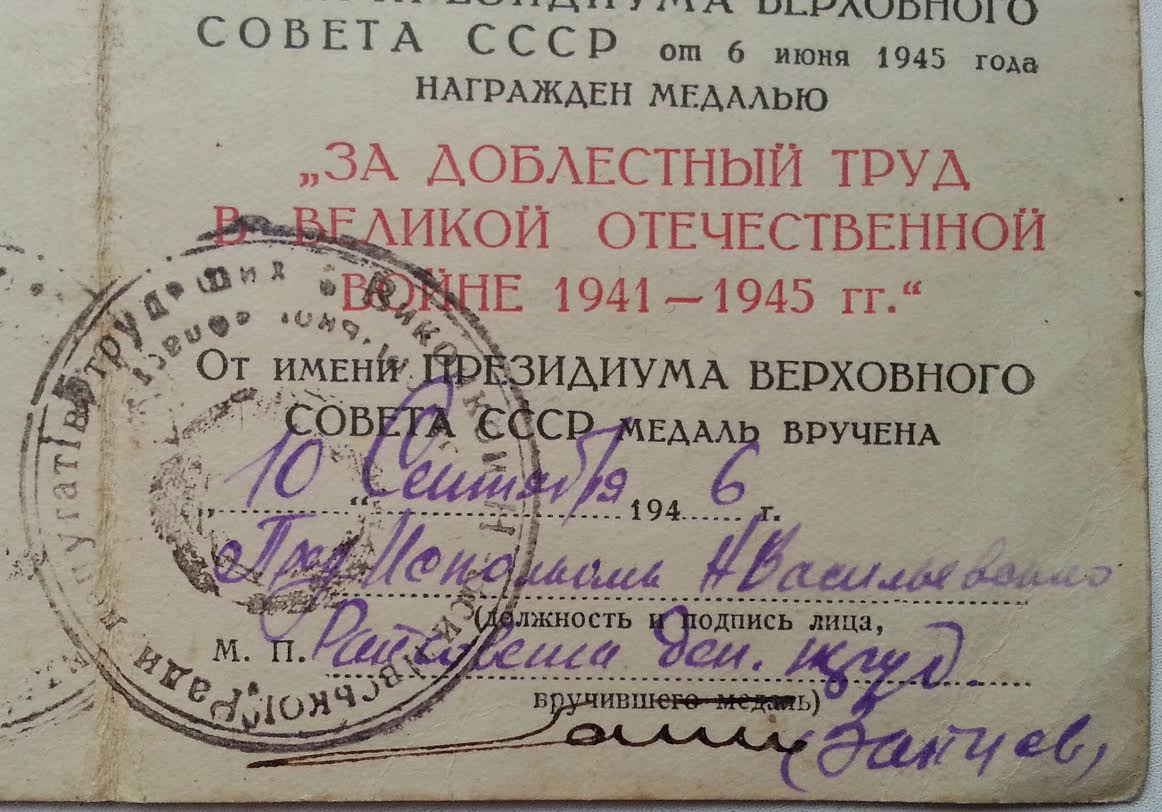 ПРЕЗИДИУМА ВЕРХОВНОГО
СОВЕТА СССР от 6 июня 1945 года
НАГРАЖДЕН МЕДАЛЬЮ
„ЗА ДОБЛЕСТНЫЙ ТРУД
В ВЕЛИКОЙ ОТЕЧЕСТВЕННОЙ
ВОЙНЕ 1941—1945 гг.“
От имени ПРЕЗИДИУМА ВЕРХОВНОГО
СОВЕТА СССР МЕДАЛЬ ВРУЧЕНА
„10“ Сентября 1946 г.
Пред Исполкома НВасильевского
(должность и подпись лица,
М. П. Райсовета Деп. труд.
вручившего медаль)
(Зайцев)